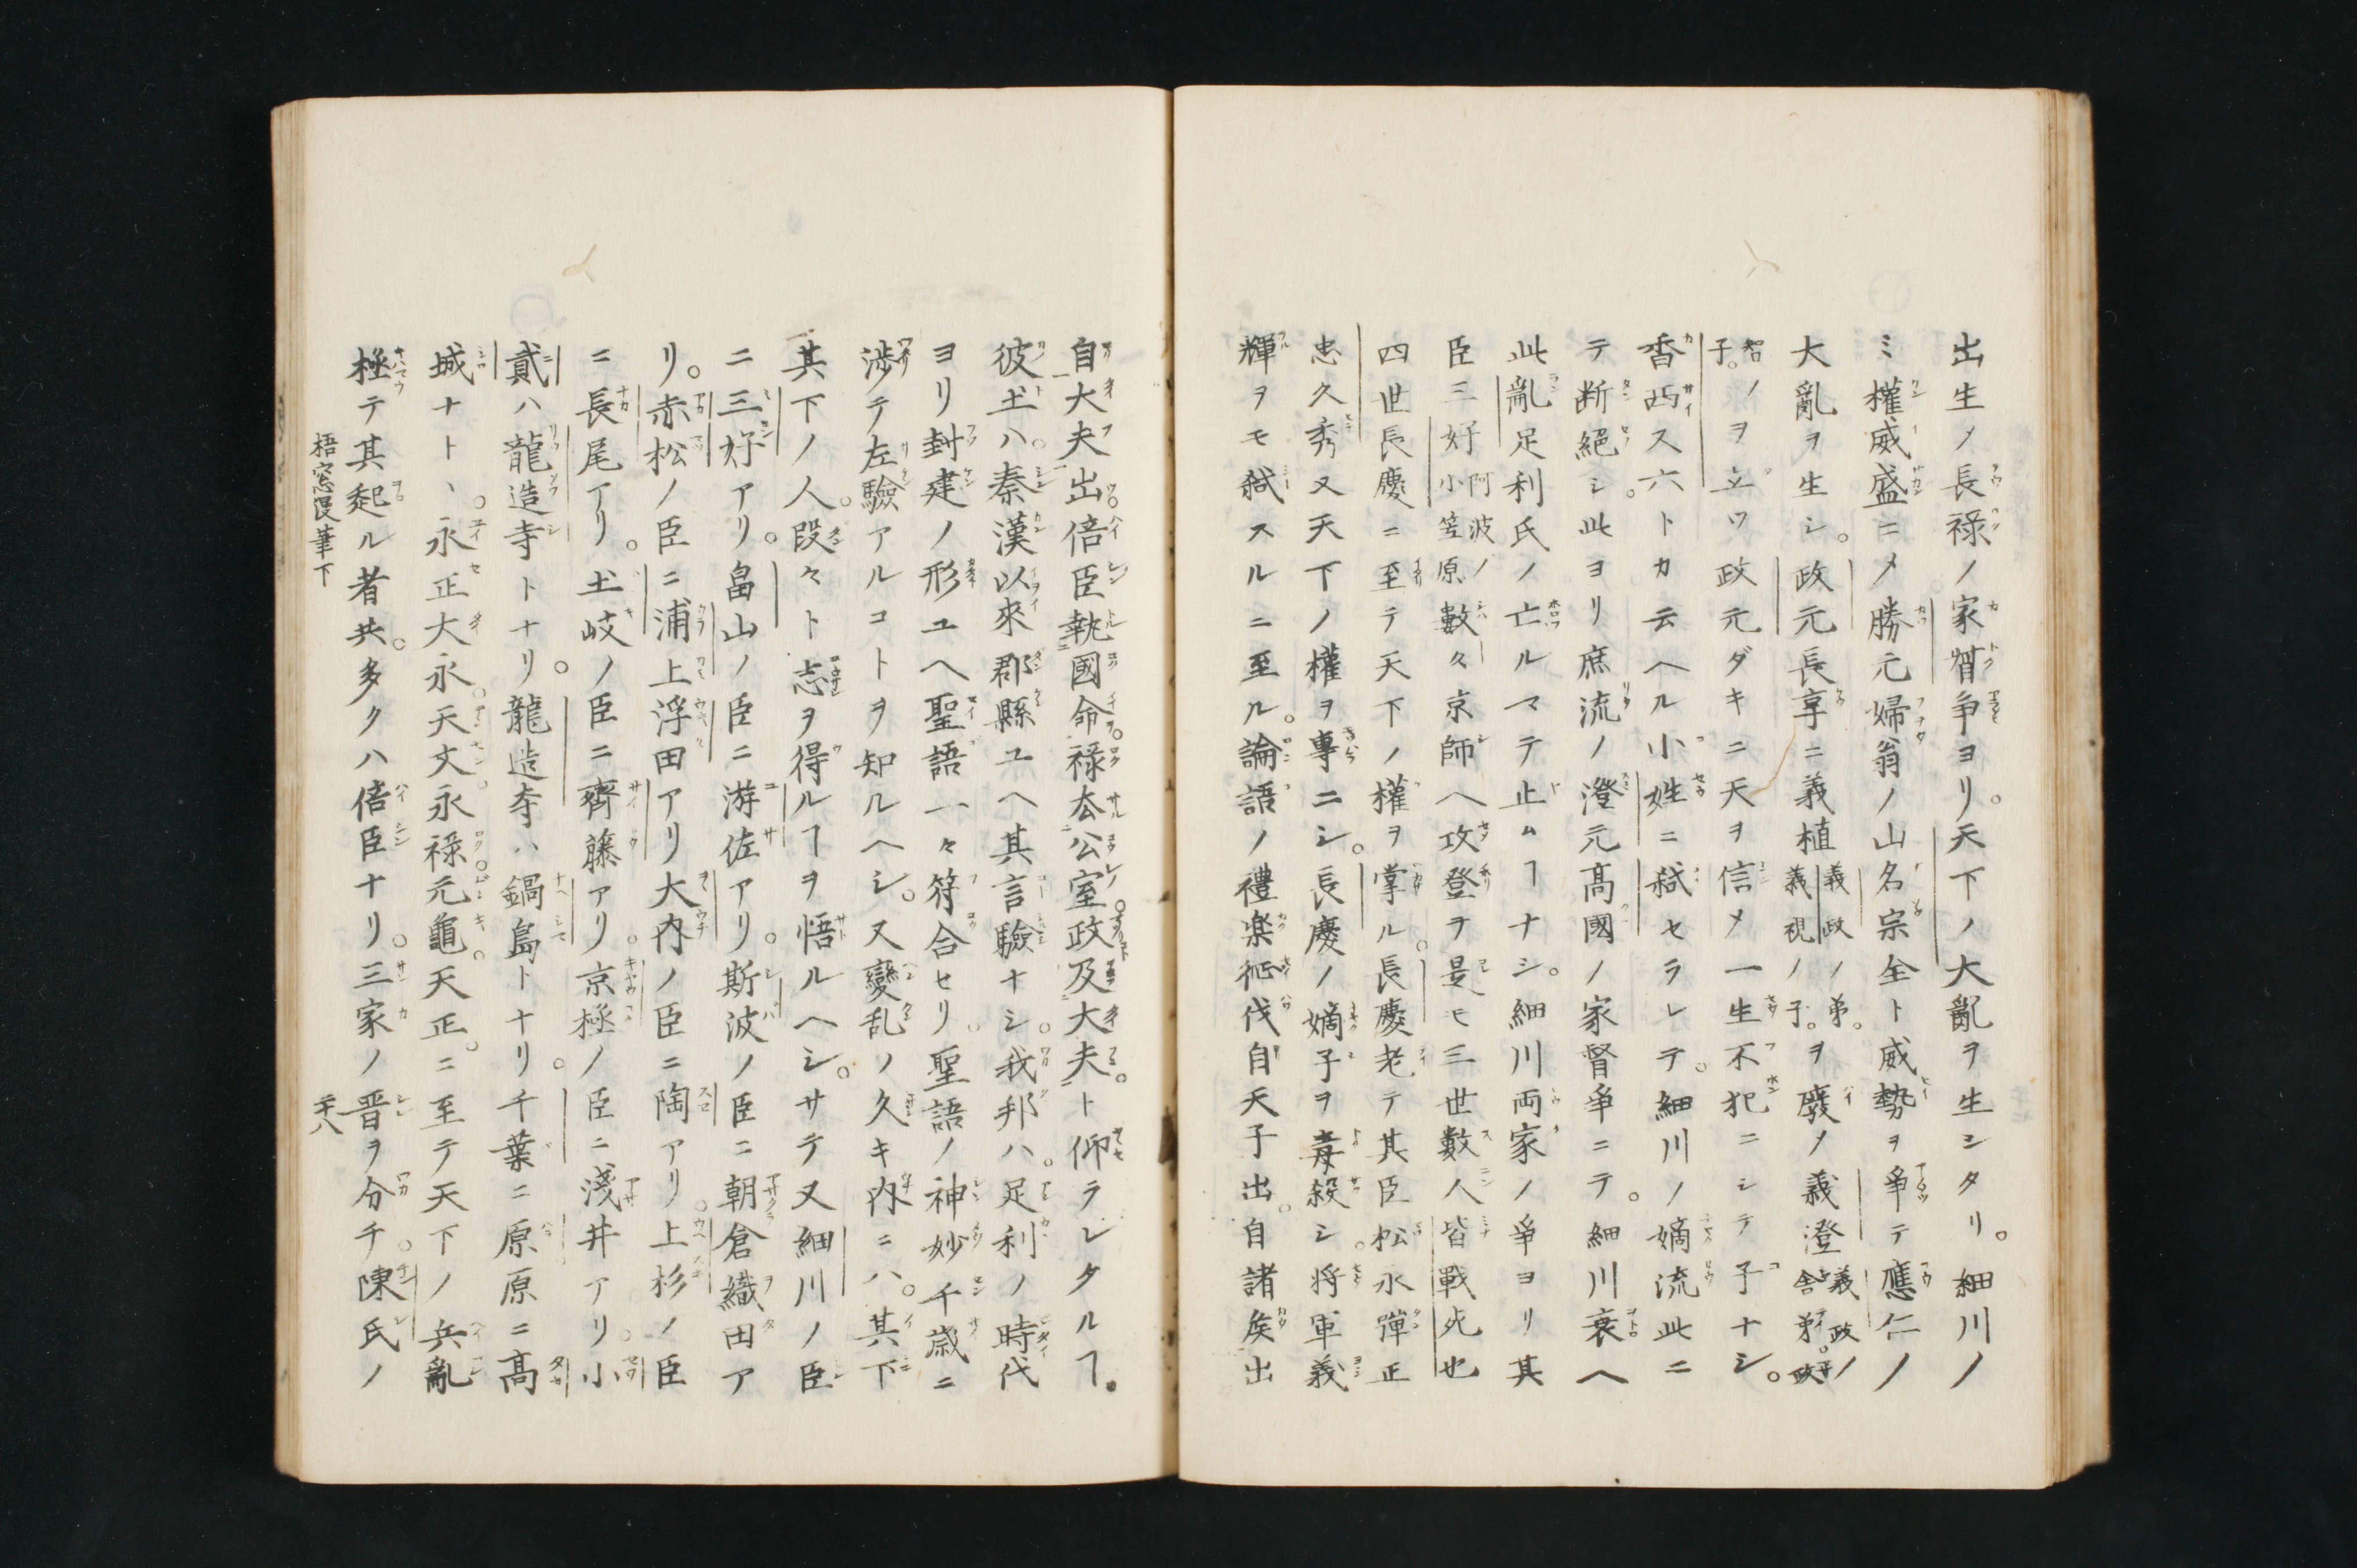 出生ノ長禄ノ家督爭ヨリ。天下ノ大亂ヲ生シタリ。細川ノ
ミ權威盛ニメ勝元婦翁ノ山名宗全ト威勢ヲ爭テ應仁ノ
大亂ヲ生シ。政元長享ニ義植義政ノ弟。義視ノ子。ヲ廢メ義澄義政ノ舎弟。政
知ノ子。ヲ立ツ政元ダキニ天ヲ信メ一生不犯ニシテ子ナシ。
香西又六トカ云ヘル小姓ニ弑セラレテ。細川ノ嫡流此ニ
テ断絕シ。此ヨリ庶流ノ澄元髙國ノ家督爭ニテ。細川衰ヘ
此亂足利氏ノ亡ルマテ止ムヿナシ。細川両家ノ爭ヨリ其
臣三好阿波ノ小笠原數々京師ヘ攻登ヲ是モ三世數人皆戰死也
四世長慶ニ至テ天下ノ權ヲ掌ル。長慶老テ其臣松永彈正
忠久秀又天下ノ權ヲ專ニシ。長慶ノ嫡子ヲ毒殺シ。将軍義
輝ヲモ弑スルニ至ル。論語ノ禮楽征伐自天子出。自諸矦出
自大夫出。倍臣執國命。禄去公室。政及大夫。ト仰ラレタルヿ。
彼土ハ。秦漢以來郡縣ユヘ其言驗ナシ。我邦ハ。足利ノ時代
ヨリ封建ノ形ユヘ聖語一々符合セリ。聖語ノ神妙千歳ニ
渉テ左驗アルコトヲ知ルヘシ。又變乱ノ久キ内ニハ。其下
其下ノ人。段々ト志ヲ得ルヿヲ悟ルヘシ。サテ又細川ノ臣
ニ三好アリ。畠山ノ臣ニ游佐アリ。斯波ノ臣ニ朝倉織田ア
リ。赤松ノ臣ニ浦上浮田アリ大内ノ臣ニ陶アリ。上杉ノ臣
ニ長尾アリ。土岐ノ臣ニ齊藤アリ。京極ノ臣ニ淺井アリ。小
貳ハ龍造寺トナリ。龍造寺ハ鍋島トナリ。千葉ニ原原ニ髙
城ナトヽ。永正大永。天文。永禄。元龜。天正。ニ至テ天下ノ兵亂
極テ其起ル者共。多クハ倍臣ナリ。三家ノ晋ヲ分チ。陳氏ノ
梧窓漫筆下
二十八